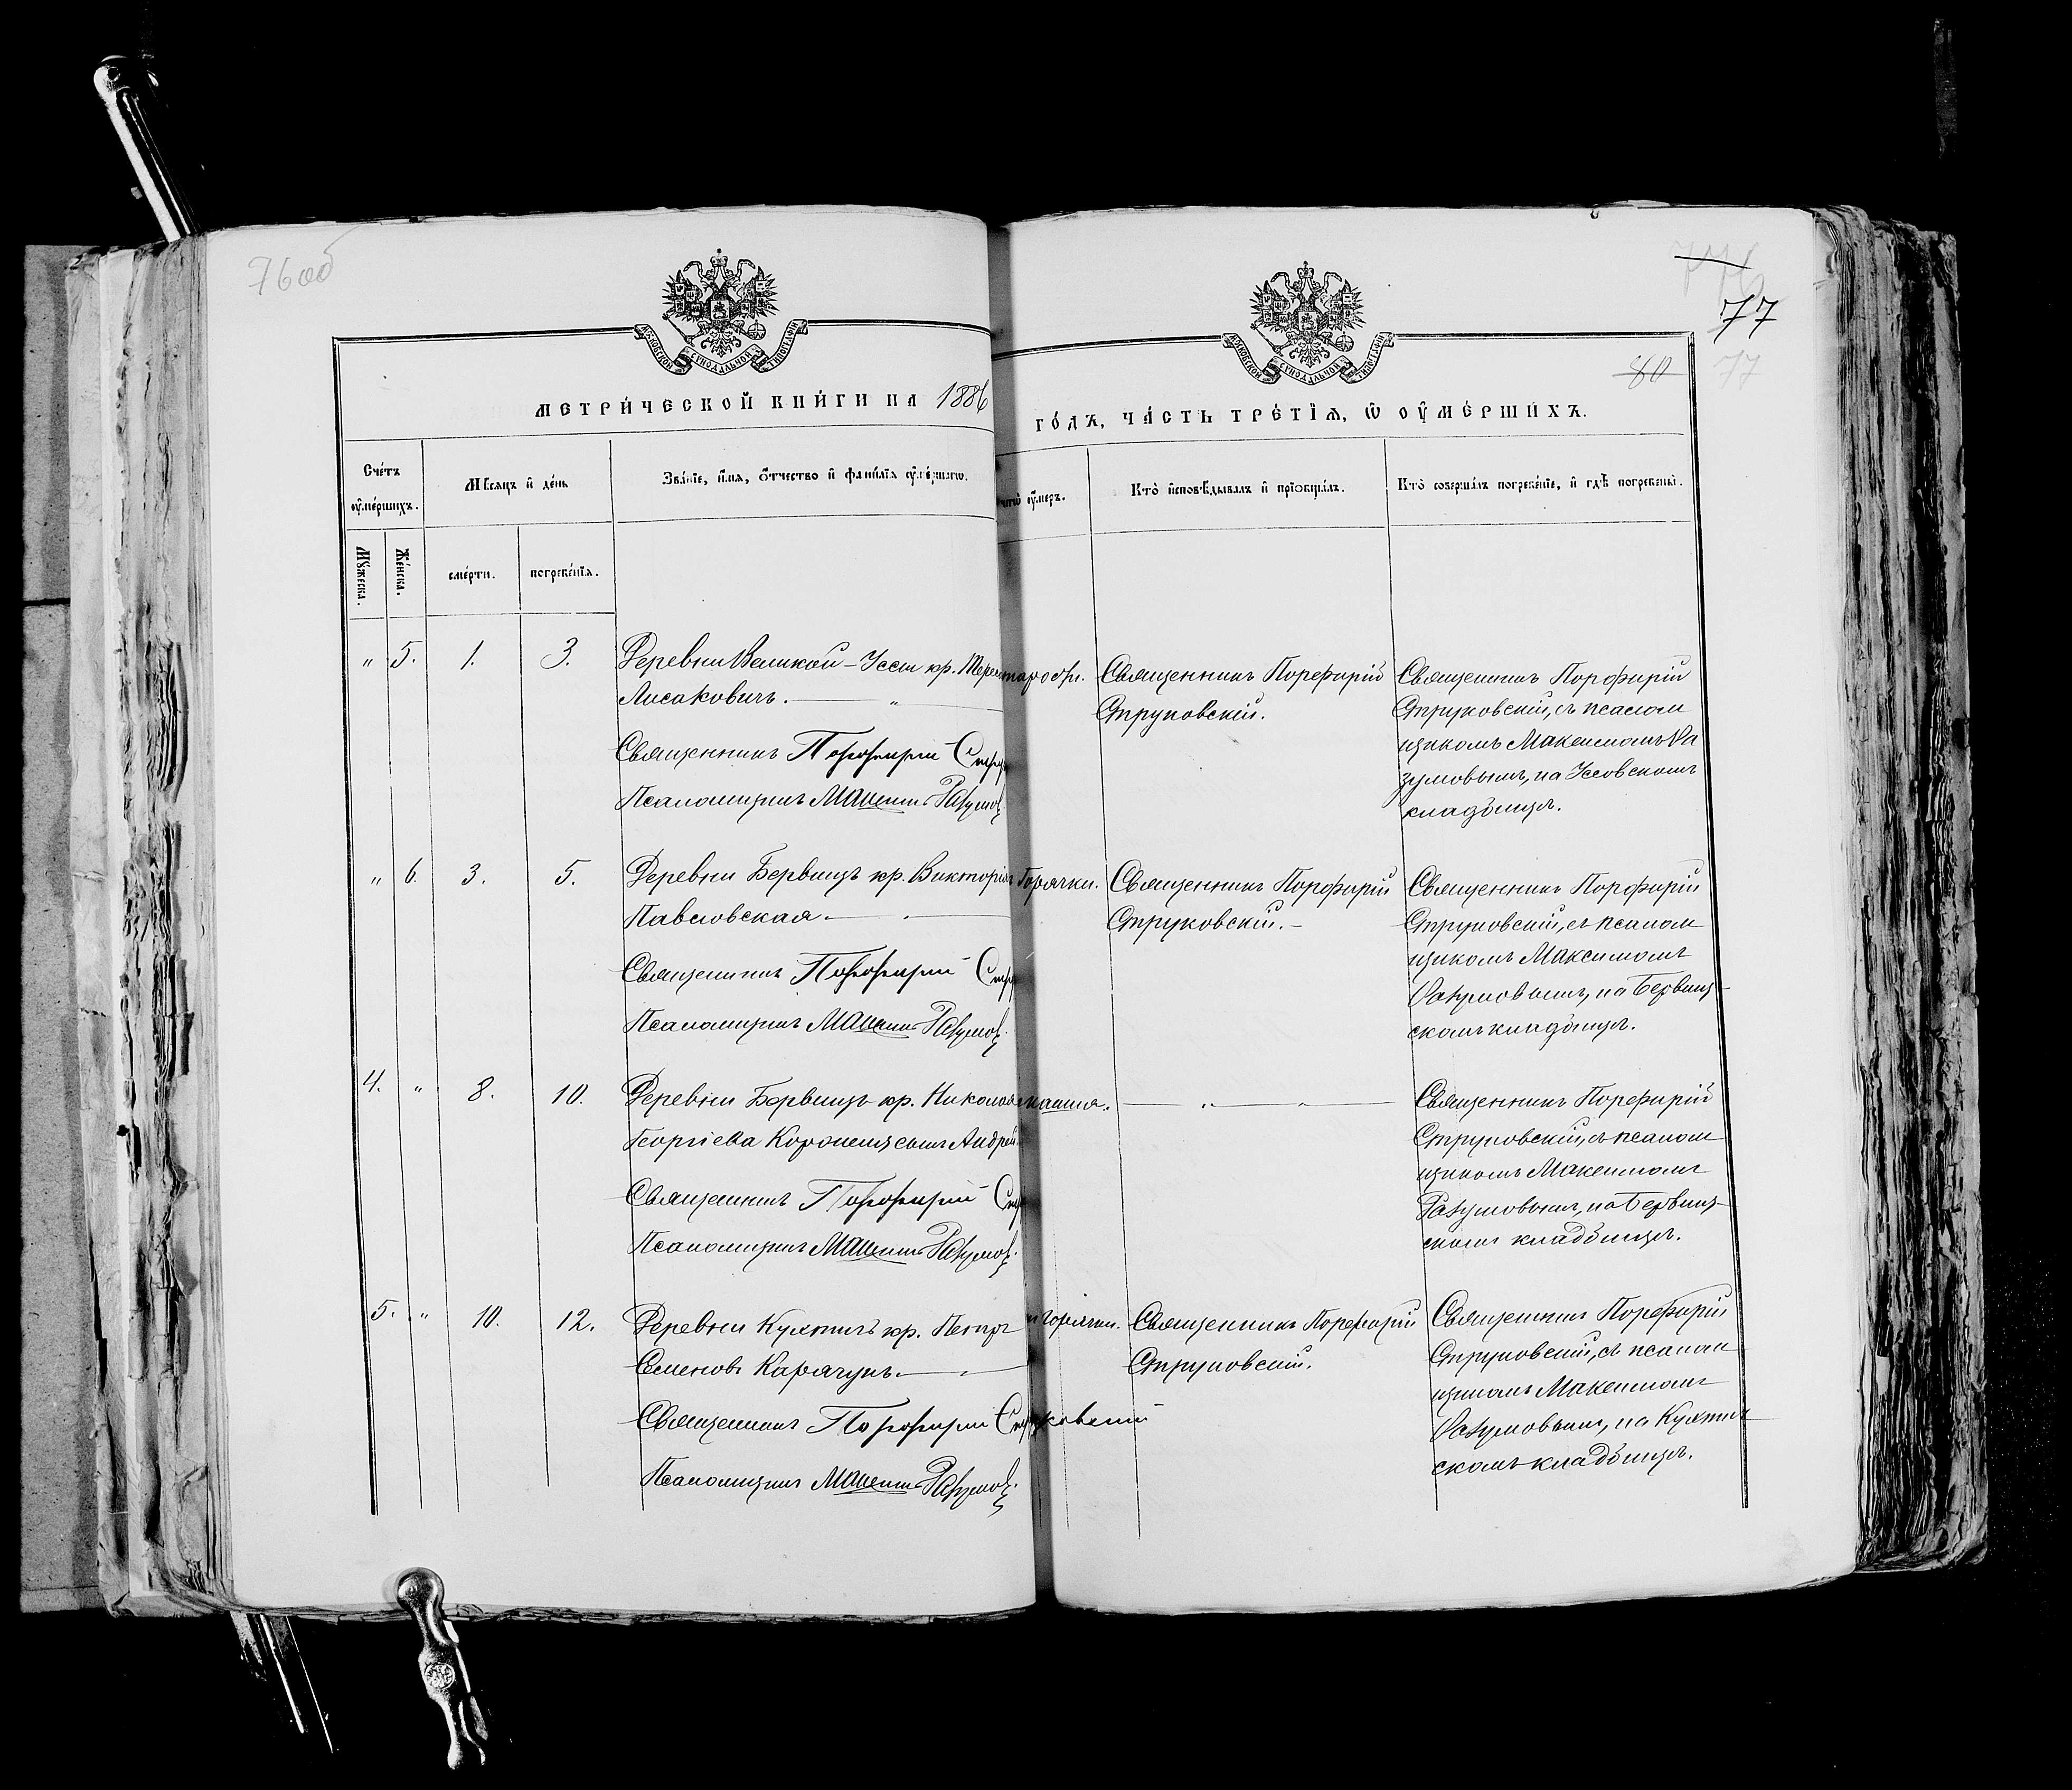 76 об
77
80
77
МОСКОВСКОЙ СѴНОДАЛЬНОЙ ТИПОГРАФІИ
МОСКОВСКОЙ СѴНОДАЛЬНОЙ ТИПОГРАФІИ
МЕТРИ́ЧЕСКОЙ КНИ́ГИ НА 1886
ГО́ДЪ, ЧА́СТЬ ТРЕ́ТІѦ, Ѡ ОУМЕ́РШИХЪ.
Сче́тъ
оуме́ршихъ.
Мѣсяцъ и де́нь
Зва́ніе, и́мя, о́тчество и фами́лія оуме́ршагѡ.
чегѡ̀ оу́меръ.
Кто̀ исповѣ́дывалъ и прїобща́лъ.
Кто̀ соверша́лъ погребе́ніе, и гдѣ̀ погребены̀.
Мꙋ́жеска.
Же́нска.
сме́рти.
погребе́нїя.
" 5. 1. 3.
Деревни Великой-Уссы кр.
старости.
Лисаковичъ. — " —
Священникъ Порфирій
Псаломщикъ Максимъ Разумов
Священникъ Порфирій
Струковскій.
Священникъ Порфирій
Струковскій, съ псалом
щикомъ Максимомъ Ра
зумовымъ, на Уссовскомъ
кладбищѣ.
" 6. 3. 5.
Деревни Бервищъ кр. Викторія
Горячки.
Павловская —
Священникъ Порфирій
Псаломщикъ Максимъ Разумов
Священникъ Порфирій
Струковскій. —
Священникъ Порфирій
Струковскій, съ псалом
щикомъ Максимомъ
Разумовымъ, на Бервищ-
скомъ кладбищѣ.
4. " 8. 10.
Деревни Бервищъ кр. Николая
кашля.
Георгіева сынъ Андрей
Священникъ Порфирій
Псаломщикъ Максимъ Разумов
— " — " —
Священникъ Порфирій
Струковскій, съ псалом
щикомъ Максимомъ
Разумовымъ, на Бервищ-
скомъ кладбищѣ.
5. " 10. 12.
Деревни кр. Петръ
горячки.
Семеновъ Карачунъ. —
Священникъ Порфирій Струковскій
Псаломщикъ Максимъ Разумов
Священникъ Порфирій
Струковскій.
Священникъ Порфирій
Струковскій, съ псалом
щикомъ Максимомъ
Разумовымъ, на
скомъ кладбищѣ.